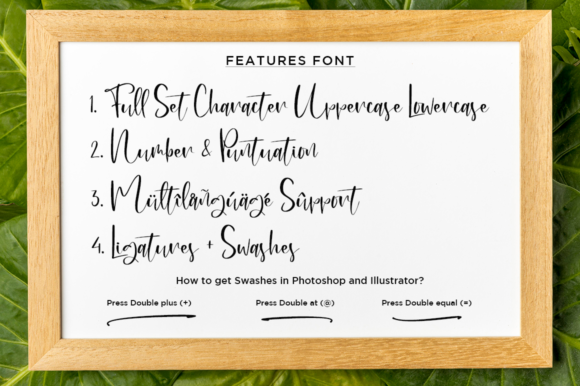 FEATURES FONT
1. Full Set Character Uppercase Lowercase
2. Number & Puntuation
3. Mültîlåñgúägé Sûpport
4. Ligatures + Swashes
How to get Swashes in Photoshop and Illustrator?
Press Double plus (+) Press Double at (@) Press Double equal (=)